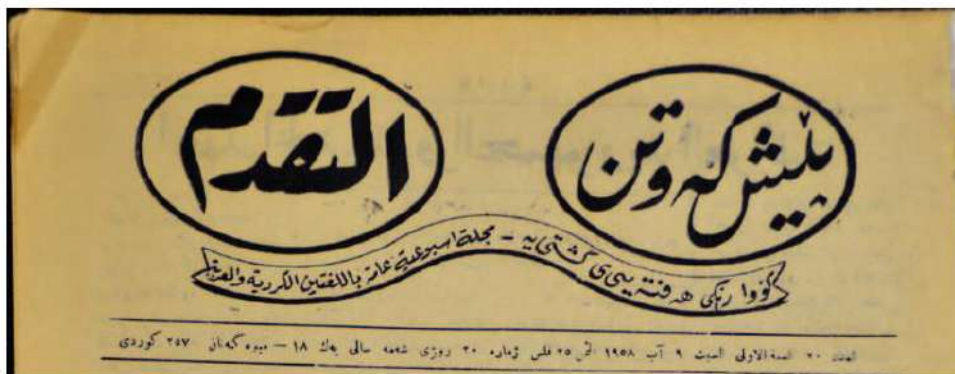 پێش کەوتن
التقدم
گۆڤارێکی هەفتەیی گشتی یە - مجلة اسبوعية عامة باللغتين الكردية والعربية
العدد ٢٠ السنة الاولى السبت ٩ آب ١٩٥٨ الثمن ٢٥ فلس ژمارە ٢٠ روژی شەممە سالی یەك ١٨ — میوە گەنان ٢٥٧ كوردی